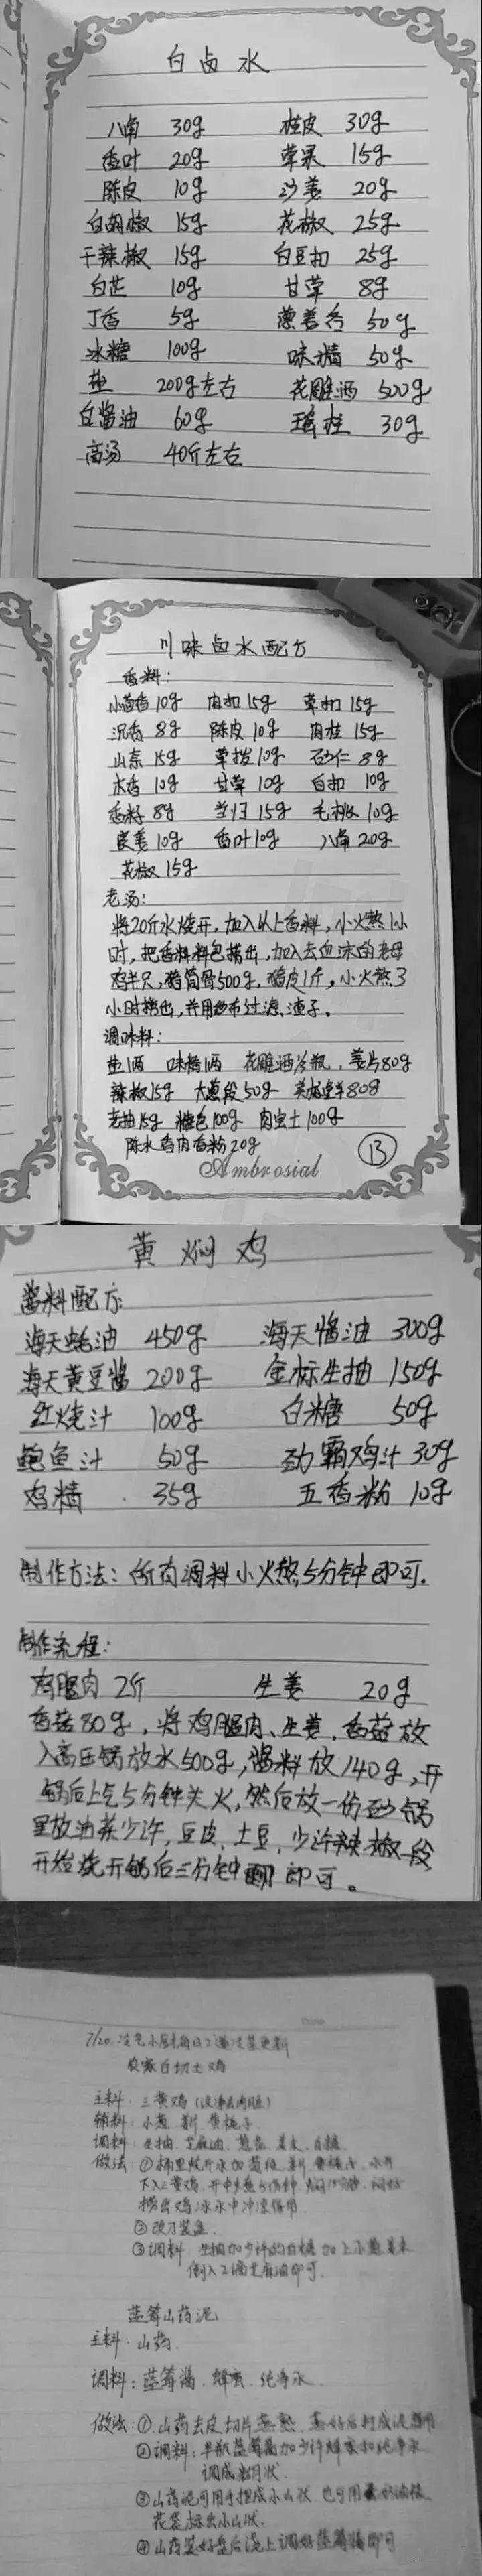 白卤水
八角 30g 桂皮 30g
香叶 20g 草果 15g
陈皮 10g 沙姜 20g
白胡椒 15g 花椒 25g
干辣椒 15g 白豆扣 25g
白芷 10g 甘草 8g
丁香 5g 50g
冰糖 100g 味精 50g
盐 200g左右 花雕酒 500g
白酱油 60g 瑶柱 30g
高汤 40斤左右
川味卤水配方
香料:
小茴香10g 肉扣15g 草扣15g
沉香 8g 陈皮10g 肉桂 15g
山奈 15g 草拨10g 石少仁 8g
木香 10g 甘草 10g 白扣 10g
香籽 8g 当归 15g 毛桃 10g
良姜10g 香叶10g 八角20g
花椒15g
老汤:
将20斤水烧开,加入以上香料,小火熬1小
时,把香料料包捞出,加入去血沫的老母
鸡半只,猪筒骨500g,猪皮1斤,小火熬3
小时捞出,并用纱布过滤渣子。
调味料:
盐1两 味精1两 花雕酒半瓶,姜片80g
辣椒15g 大葱段50g 美极鲜80g
老抽15g 糖色100g 肉宝王100g
陈水香肉香粉20g
13
Ambrosial
黄焖鸡
酱料配方:
海天蚝油 450g 海天酱油 300g
海天黄豆酱 200g 金标生抽 150g
红烧汁 100g 白糖 50g
鲍鱼汁 50g 劲霸鸡汁 30g
鸡精 35g 五香粉 10g
制作方法:所有调料小火熬5分钟即可.
制作流程:
鸡腿肉 2斤 生姜 20g
香菇80g,将鸡腿肉、生姜、香菇放
入高压锅放水500g,酱料放140g,开
锅后上气5分钟关火,然后放一份砂锅
里放油菜少许,豆皮、土豆、少许辣椒段
开始烧开锅后三分钟即可。
7/20
农家白切土鸡
主料:三黄鸡
辅料:小葱 姜片 黄栀子
调料:生抽 芝麻油 葱花 姜末 白糖
做法:①桶里烧开水加葱段 姜片 黄栀子 水开
下入三黄鸡
捞出鸡冰水中冲凉备用
②改刀装盘
③调料 生抽加少许的白糖 加上小葱姜末
倒入2滴芝麻油即可.
蓝莓山药泥
主料:山药
调料:蓝莓酱 蜂蜜 纯净水
做法:①山药去皮切片蒸熟 蒸好后打成泥备用
②调料:半瓶蓝莓酱加少许蜂蜜和纯净水
调成粘状
③山药泥可用手捏成小山状 也可用
花袋标出小山状.
④山药装好盘后浇上调好蓝莓酱即可